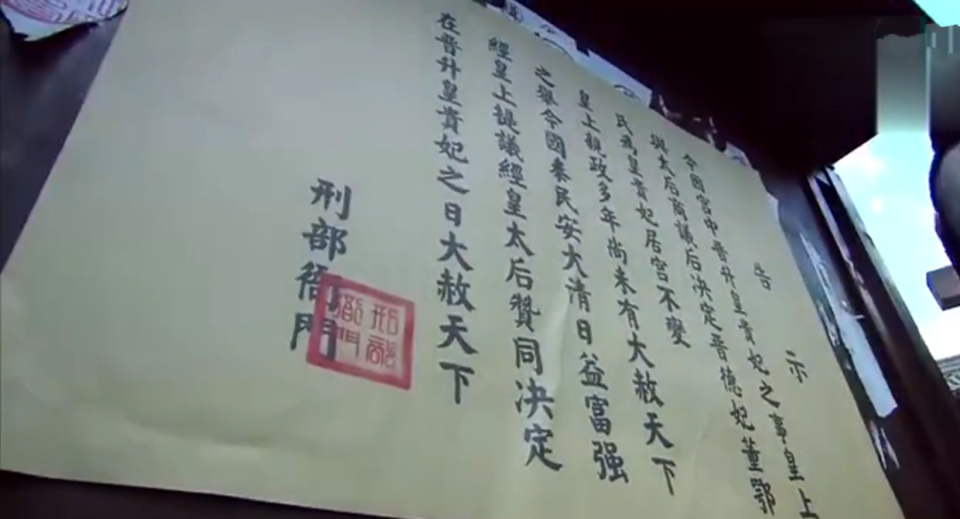 告示
今因宮中晋升皇貴妃之事皇上
與太后商議后决定晋德妃董鄂
氏為皇貴妃居宮不變
皇上親政多年尚未有大赦天下
之舉今國泰民安大清日益富强
經皇上提議經皇太后贊同决定
在晋升皇貴妃之日大赦天下
刑部衙門
刑部衙門